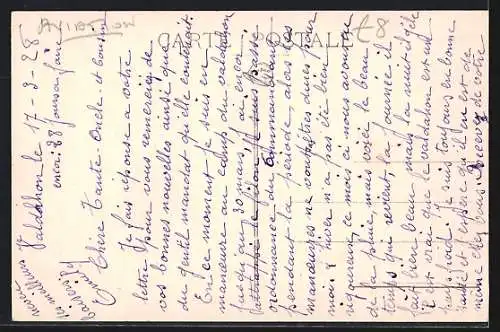 CARTE POSTALE
Valdahon le 17-3-28
encore 28 jours a faire
Chère Tante - Oncle - et cousin
Je fais réponse a votre
lettre pour vous remercier de
vos bonnes nouvelles ainsi que
du gentil mandat qu'elle contenait.
En ce moment je suis en
manœuvre au camp du Valdahon
jusqu'au 30 mars, j'ai encore
ordonnance du Commandant
pendant la période, alors les
manœuvres ne sont pas dures pour
moi. L'hiver n'a pas été bien
rigoureux ce mois ci nous avons eu
de la pluie, mais voilà le beau
temps qui revient, la journée il
fait bien beau mais la nuit il gèle
il est vrai que le valdahon est un
pays froid. Je suis toujours en bonne
santé et j'espère qu'il en est de
même chez vous. Recevez de votre
neveu
les meilleurs
baisers